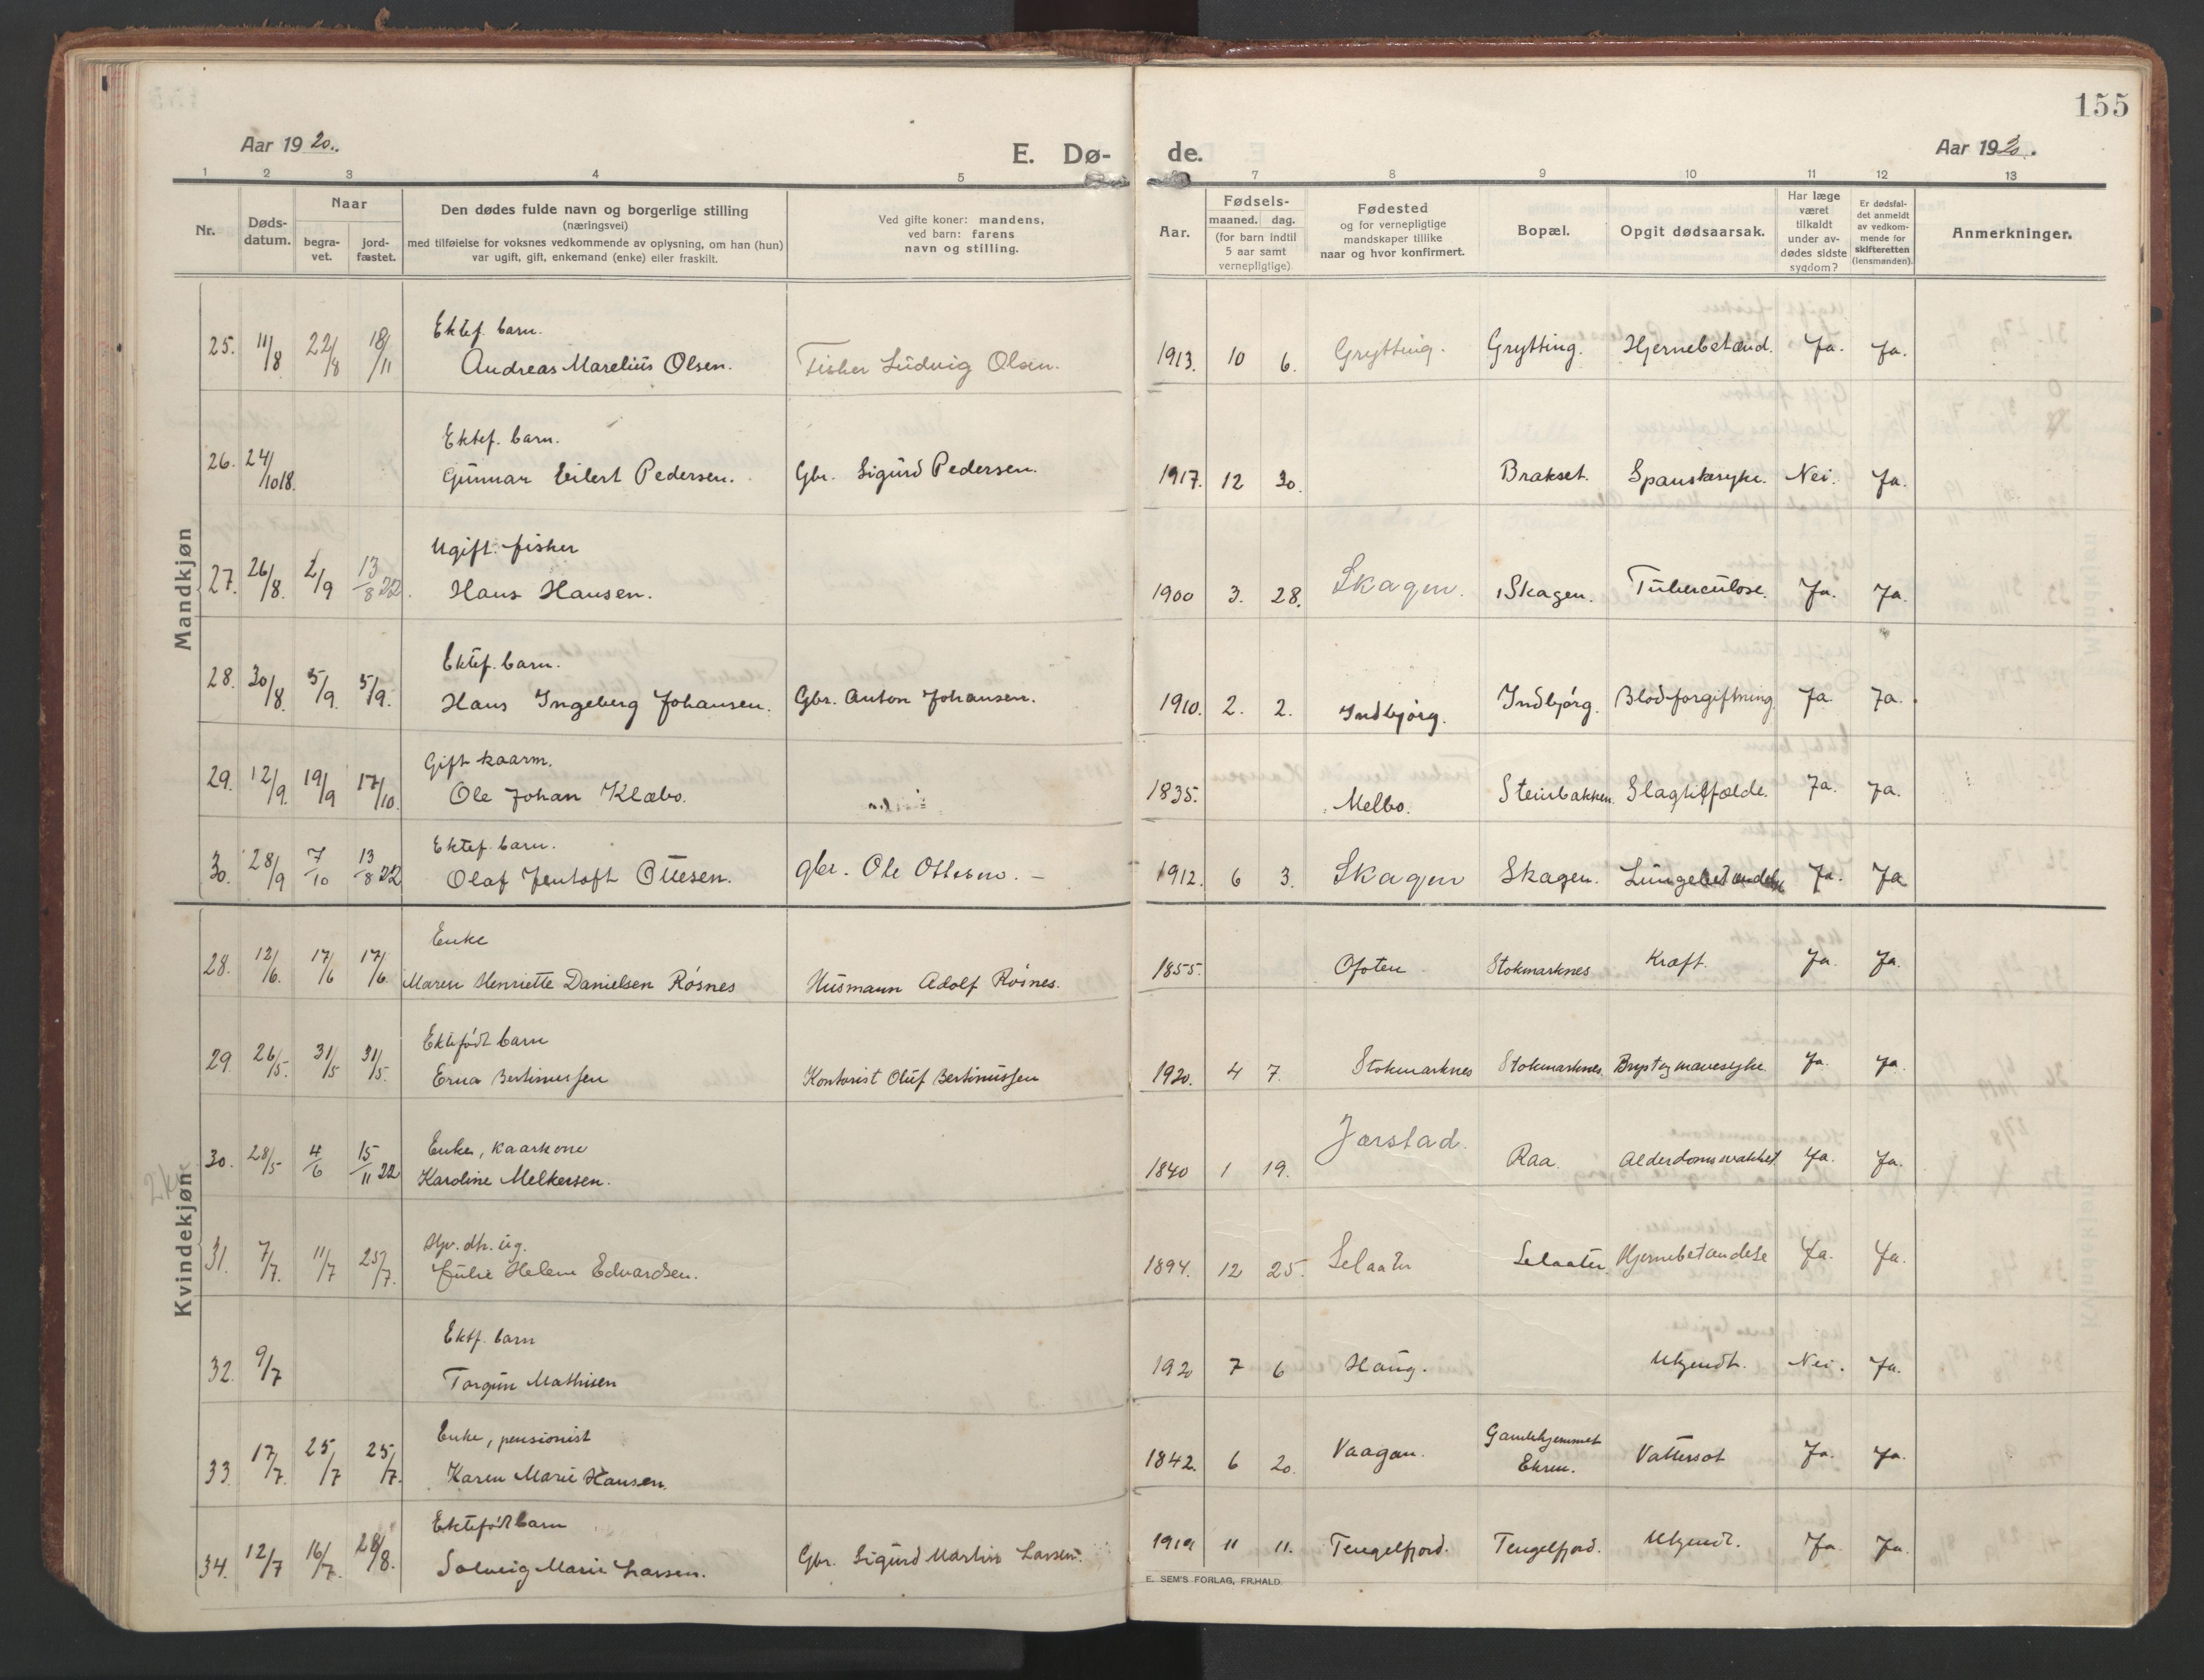 155
Aar 1920.
E. Dø-
de.
Aar 1920.
1 2 3 4 5 7 8 9 10 11 12 13
Nr.
Døds-
datum.
Naar
begra-
vet.
jord-
fæstet.
Den dødes fulde navn og borgerlige stilling
(næringsvei)
med tilføielse for voksnes vedkommende av oplysning, om han (hun)
var ugift, gift, enkemand (enke) eller fraskilt.
Ved gifte koner: mandens,
ved barn: farens
navn og stilling.
Aar.
Fødsels-
maaned. dag.
(for barn indtil
5 aar samt
vernepligtige)
Fødested
og for vernepligtige
mandskaper tillike
naar og hvor konfirmert.
Bopæl.
Opgit dødsaarsak.
Har læge
været
tilkaldt
under av-
dødes sidste
sygdom?
Er dødsfal-
det anmeldt
av vedkom-
mende for
skifteretten
(lensmanden).
Anmerkninger.
Mandkjøn
Ektef. barn.
25. 11/8 22/8 18/11 Andreas Marelius Olsen. Fisker Ludvig Olsen. 1913. 10 6. Grytting. Grytting. Hjernebetænd. Ja. Ja.
Ektef. barn.
26. 24/10 18. Gunnar Eilert Pedersen. Gbr. Sigurd Pedersen. 1917. 12 30. Brakset. Spanskesyke. Nei. Ja.
Ugift fisker
27. 26/8. 2/9 13/8 22. Hans Hansen. 1900 3. 28. Skagen. Skagen. Tuberculose. Ja. Ja.
Ektef. barn.
28. 30/8. 5/9. 5/9. Hans Ingeberg Johansen. Gbr. Anton Johansen. 1910. 2. 2. Indbjørg. Indbjørg. Blodforgiftning Ja. Ja.
Gift kaarm.
29. 12/9. 19/9 17/10. Ole Johan Klæbo. 1835. Melbo. Steinbakken. Slagtilfælde. Ja. Ja.
Ektef. barn.
30. 28/9 7/10 13/8 22 Olaf Jentoft Ottesen. gbr. Ole Ottesen. – 1912. 6 3. Skagen Skagen. Lungebetændelse Ja. Ja
Kvindekjøn
Enke
28. 12/6. 17/6 17/6 Maren Henriette Danielsen Røsnes Husmann Adolf Røsnes. 1855. Ofoten Stokmarknes Kræft. Ja. Ja.
Ektefødt barn
29. 26/5. 31/5 31/5. Erna Bertinussen Kontorist Oluf Bertinussen 1920. 4 7. Stokmarknes Stokmarknes. Bryst og mavesyke Ja. Ja.
Enke, kaarkone
30. 28/5 4/6 15/11 22 Karoline Melkersen. 1840 1 19. Jørstad. Raa. Alderdomssvakhet Ja. Ja.
Gbr. dtr. ug.
31. 7/7. 11/7 25/7. Julie Helene Edvardsen. 1894. 12 25. Selaater Selaater. Hjernebetændelse Ja. Ja.
Ektf. barn
32. 9/7 Torgun Mathisen 1920 7 6 Haug. Ukjendt. Nei. Ja.
Enke, pensionist
33. 17/7. 25/7 25/7. Karen Marie Hansen. 1842. 6 20. Vaagan. Gamlehjemmet
Ekren. Vattersot Ja. Ja.
Ektefødt barn
34. 12/7 16/7. 28/8. Solveig Marie Larsen. Gbr. Sigurd Martin Larsen. 1919 11 11. Tengelfjord. Tengelfjord. Ukjendt. Ja. Ja.
E. SEM'S FORLAG, FR.HALD.